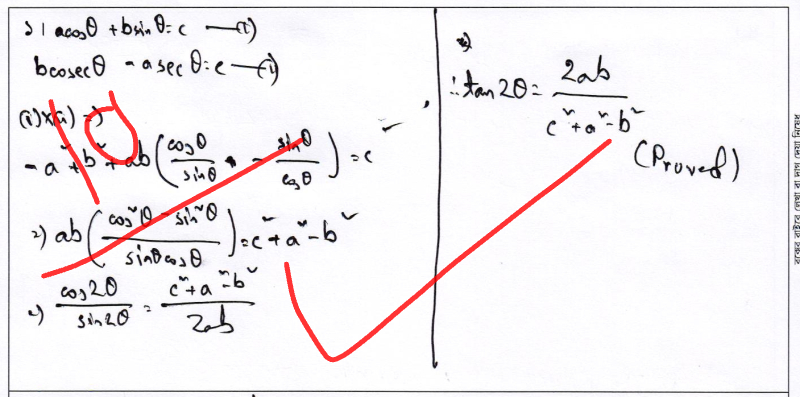 ১। acosθ + bsinθ = c —(i)
bcosecθ - asecθ = c —(ii)
(i)×(ii) ⇒
- a² + b² + ab (cosθ/sinθ - sinθ/cosθ) = c²
⇒) ab (cos²θ - sin²θ / sinθcosθ) = c² + a² - b²
⇒) cos2θ/sin2θ = c² + a² - b² / 2ab
10
∴ tan2θ = 2ab / c² + a² - b²
(Proved)
বক্সের বাইরে লেখা বা দাগ দেয়া নিষেধ